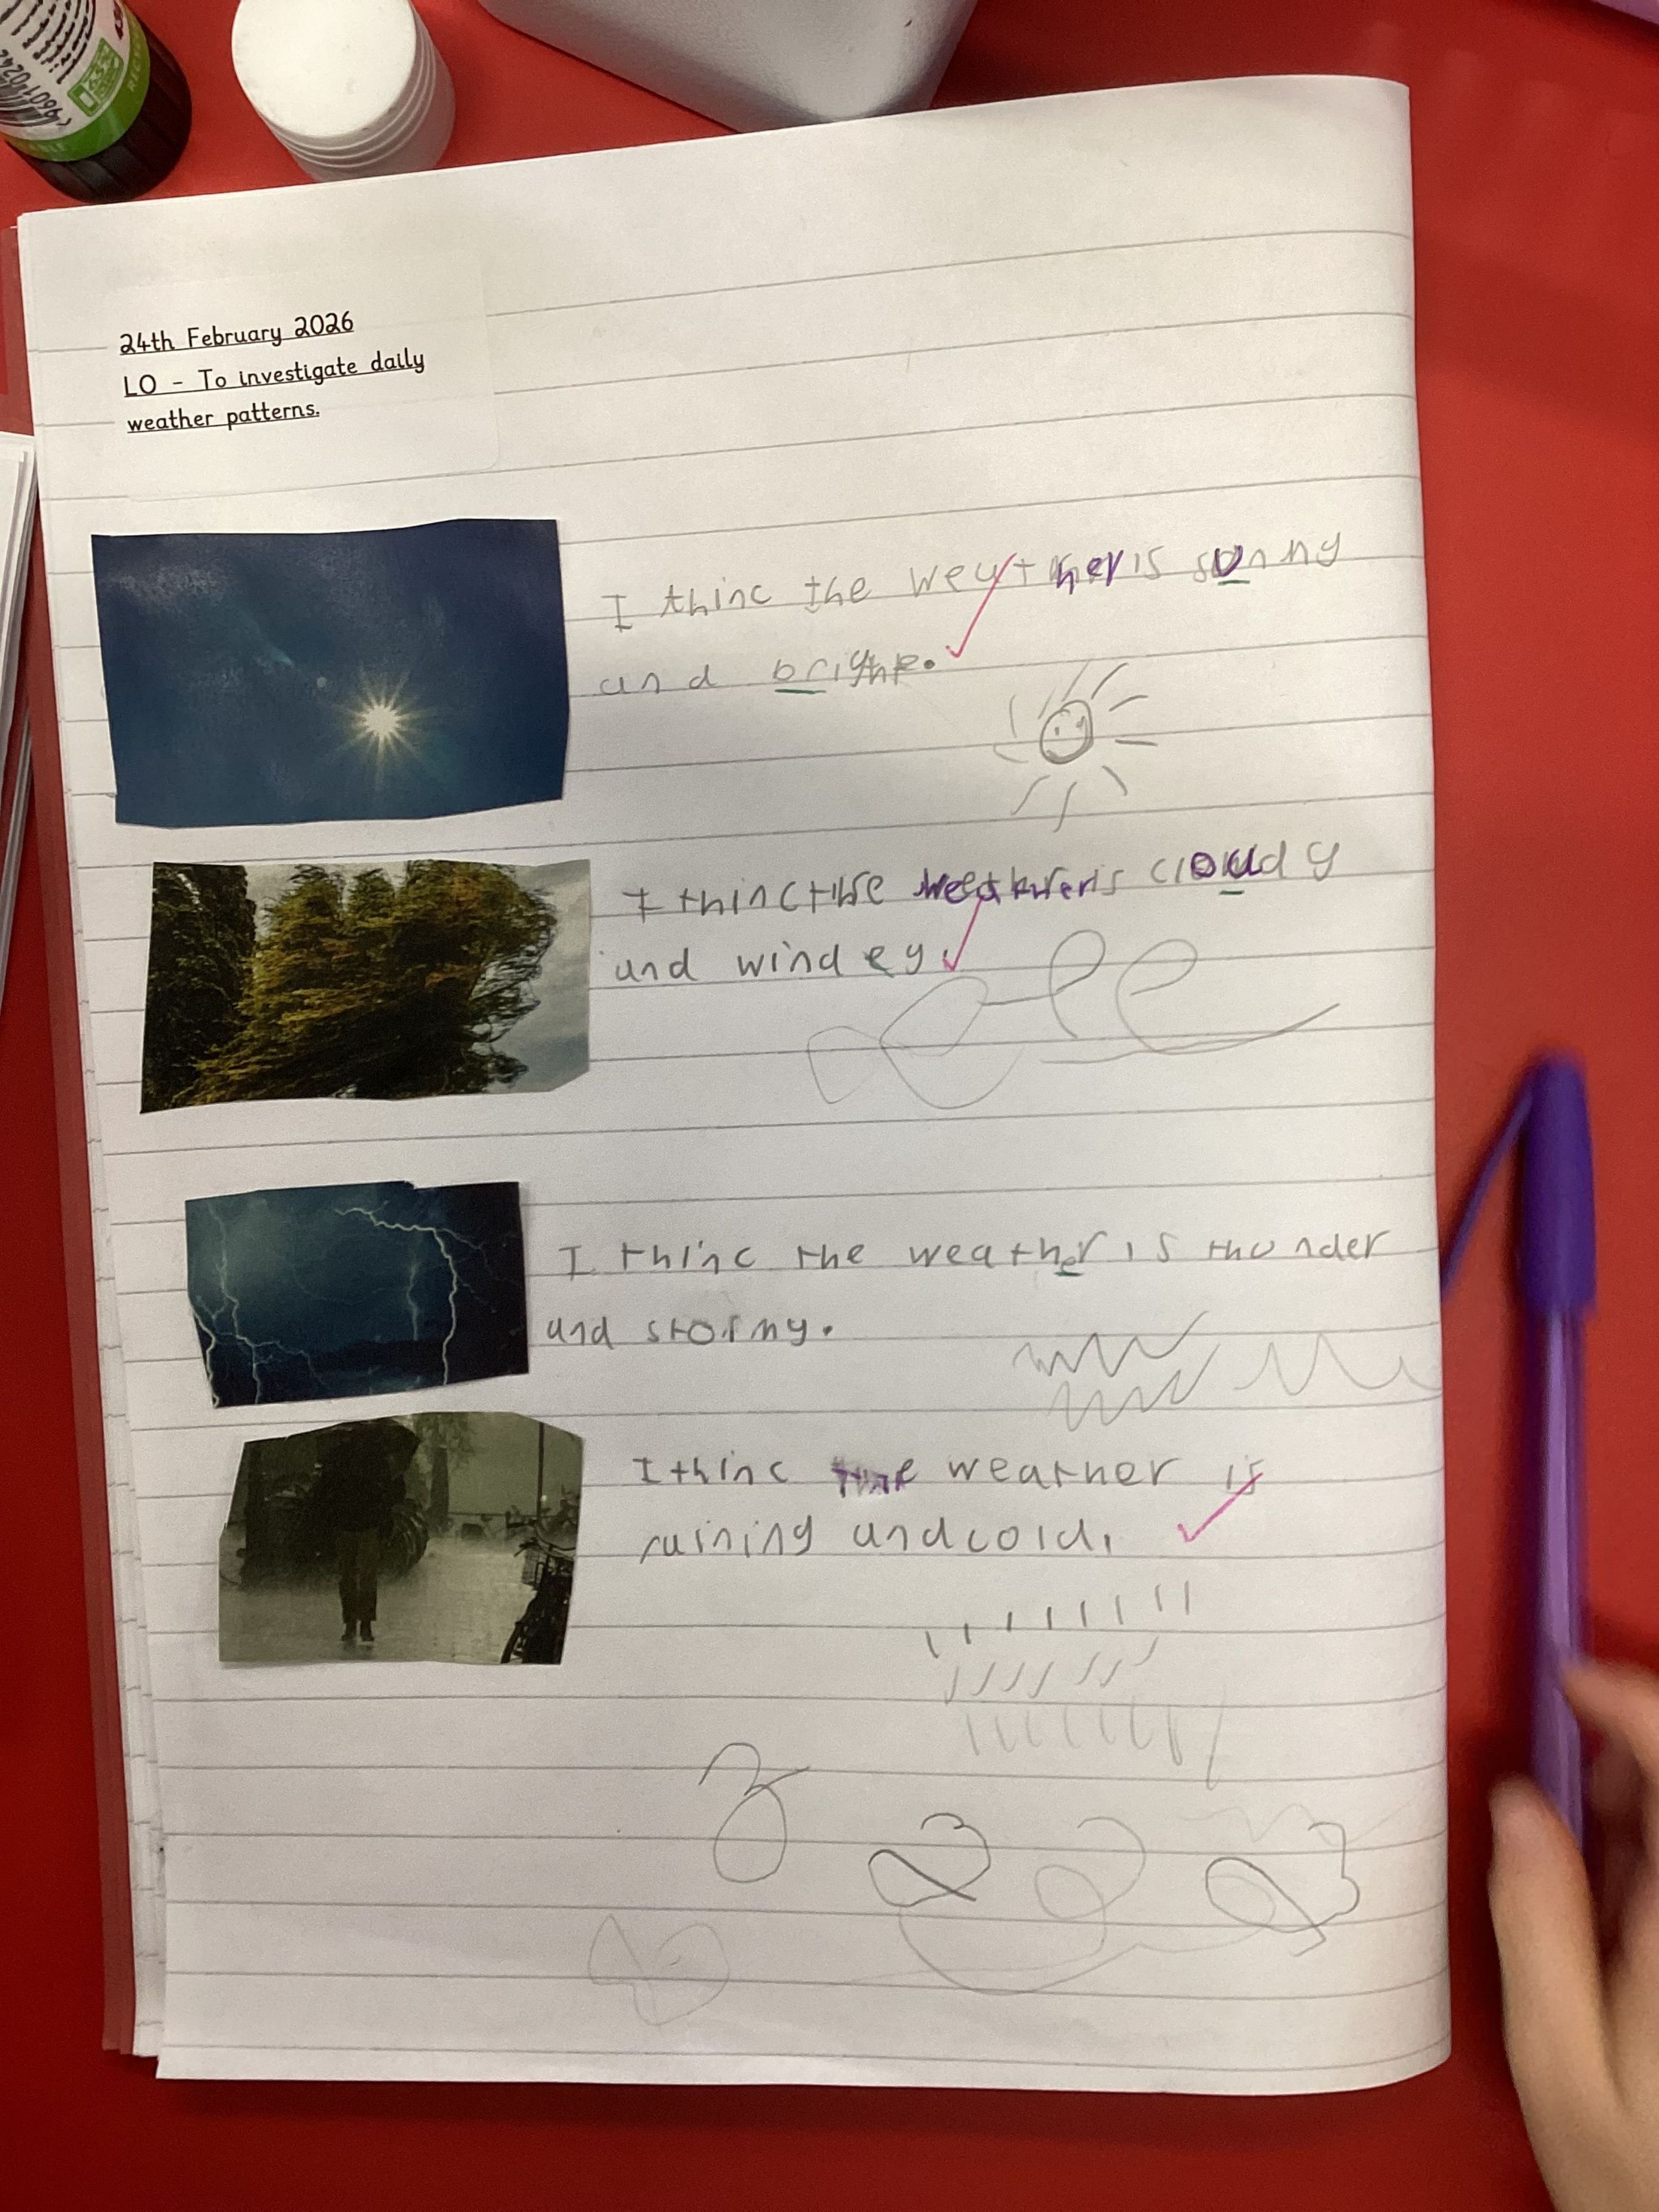 24th February 2026
LO - To investigate daily
weather patterns.
I thinc the weather is sunny
and bright.
I thinc the weather is cloudy
and windey.
I thinc the weather is thunder
and stormy.
I thinc the weather is
raining and cold.